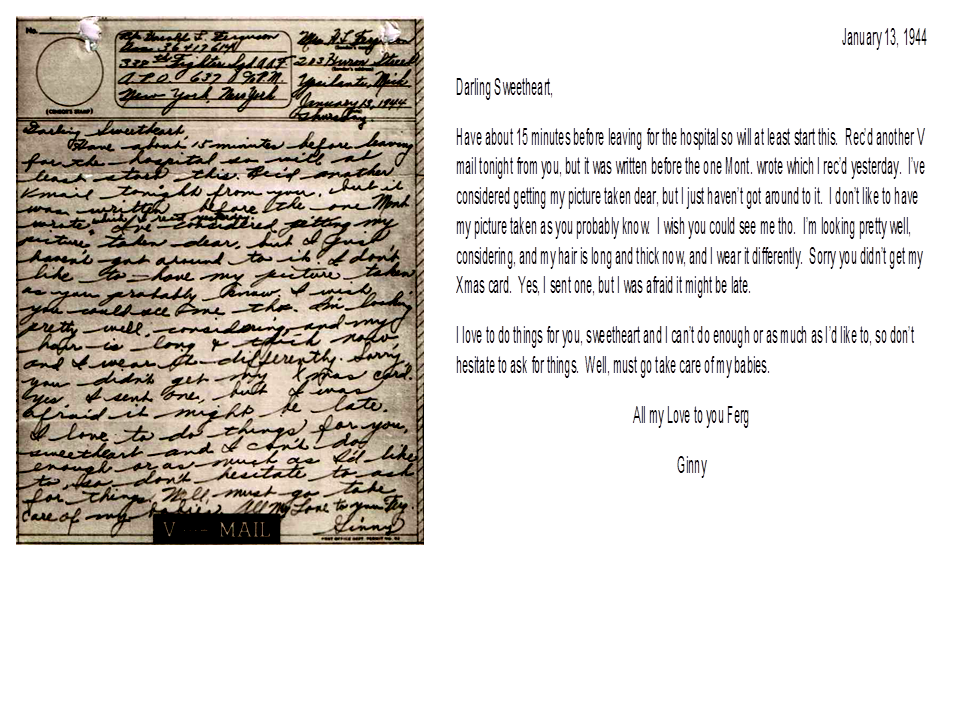 No.
(CENSOR'S STAMP)
Harold L. Ferguson
338th Fighter Sqd AAF.
A.P.O. 637 % P.M.
New York, New York
Mrs. H L Ferguson
(Sender's name)
203 Huron Street
(Sender's address)
Ypsilanti, Mich
January 13, 1944
Thursday
Darling Sweetheart,
Have about 15 minutes before leaving
for the hospital so will at
least start this. Rec'd another
Vmail tonight from you, but it
was written before the one Mont
wrote which I rec'd yesterday. I've considered getting my
picture taken dear, but I just
haven't got around to it. I don't
like to have my picture taken
as you probably know. I wish
you could see me tho. I'm looking
pretty well, considering, and my
hair is long & thick now,
and I wear it differently. Sorry
you didn't get my Xmas card.
Yes, I sent one, but I was
afraid it might be late.
I love to do things for you,
sweetheart and I can't do
enough or as much as I'd like
to, so don't hesitate to ask
for things. Well, must go take
care of my babies. All My Love to you Ferg.
Ginny
V ··· — MAIL
POST OFFICE DEPT. PERMIT NO.
January 13, 1944
Darling Sweetheart,
Have about 15 minutes before leaving for the hospital so will at least start this. Rec'd another V
mail tonight from you, but it was written before the one Mont. wrote which I rec'd yesterday. I've
considered getting my picture taken dear, but I just haven't got around to it. I don't like to have
my picture taken as you probably know. I wish you could see me tho. I'm looking pretty well,
considering, and my hair is long and thick now, and I wear it differently. Sorry you didn't get my
Xmas card. Yes, I sent one, but I was afraid it might be late.
I love to do things for you, sweetheart and I can't do enough or as much as I'd like to, so don't
hesitate to ask for things. Well, must go take care of my babies.
All my Love to you Ferg
Ginny